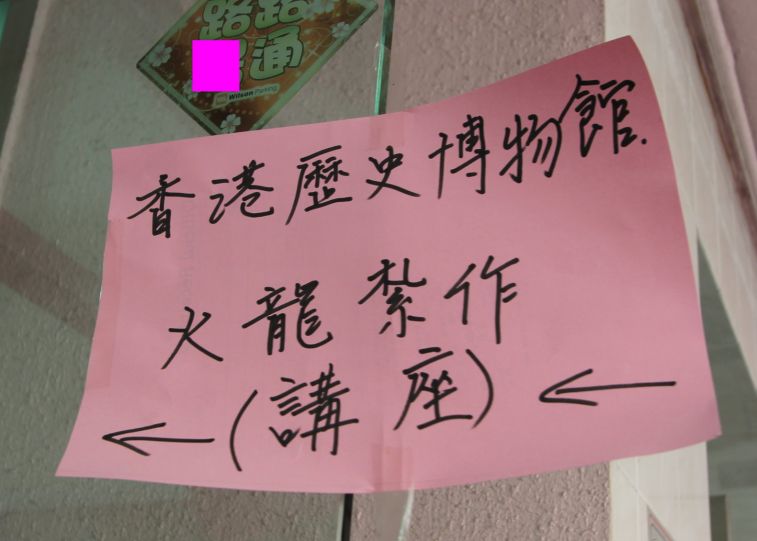 路路
通
Wilson Parking
香港歷史博物館
火龍紮作
(講座)